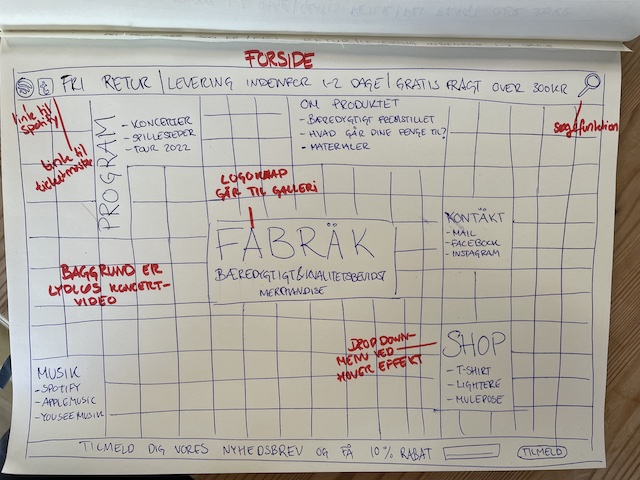 FORSIDE
FRI RETUR | LEVERING INDENFOR 1-2 DAGE | GRATIS FRAGT OVER 300KR
link til
spotify
link til
ticketmaster
søgefunktion
PROGRAM
- KONCERTER
- SPILLESTEDER
- TOUR 2022
OM PRODUKTET
- BÆREDYGTIGT FREMSTILLET
- HVAD GÅR DINE PENGE TIL?
- MATERIALER
LOGOKNAP
GÅR TIL GALLERI
FABRÄK
BÆREDYGTIGT & KVALITETSBEVIDST
MERCHANDISE
KONTÄKT
- MAIL
- FACEBOOK
- INSTAGRAM
BAGGRUND ER
LYDLØS KONCERT-
VIDEO
DROP DOWN-
MENU VED
HOVER EFFEKT
SHOP
- T-SHIRT
- LIGHTERE
- MULEPOSE
MUSIK
- SPOTIFY
- APPLE MUSIC
- YOUSEE MUSIK
TILMELD DIG VORES NYHEDSBREV OG FÅ 10% RABAT
TILMELD